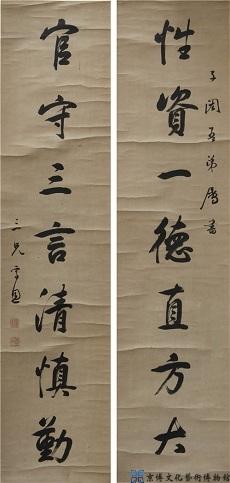 性資一德直方大
子闊吾弟屬書
官守三言清慎勤
三兄
京博文化藝術博物館